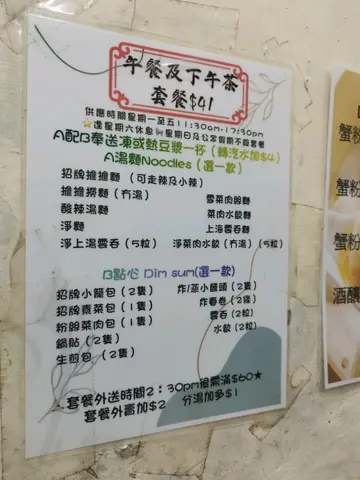 午餐及下午茶
套餐$41
供應時間星期一至五11:30am-17:30pm
逢星期六休息 星期日及公眾假期不設套餐
A配B奉送凍或熱豆漿一杯（轉汽水加$4）
A湯麵Noodles（選一款）
招牌擔擔麵（可走辣及小辣）
擔擔撈麵（冇湯） 雪菜肉絲麵
酸辣湯麵 菜肉水餃麵
淨麵 上海雲吞麵
淨上湯雲吞（5粒） 淨菜肉水餃（冇湯）（5粒）
B點心 Dim sum(選一款)
招牌小籠包（2隻） 炸/蒸小饅頭（2隻）
招牌素菜包（1隻） 炸春卷（2條）
粉絲菜肉包（1隻） 雲吞（2粒）
鍋貼（2隻） 水餃（2粒）
生煎包（2隻）
套餐外送時間2：30pm後需滿$60★
套餐外賣加$2 分湯加多$1
蟹粉
蟹粉
蟹粉
酒釀